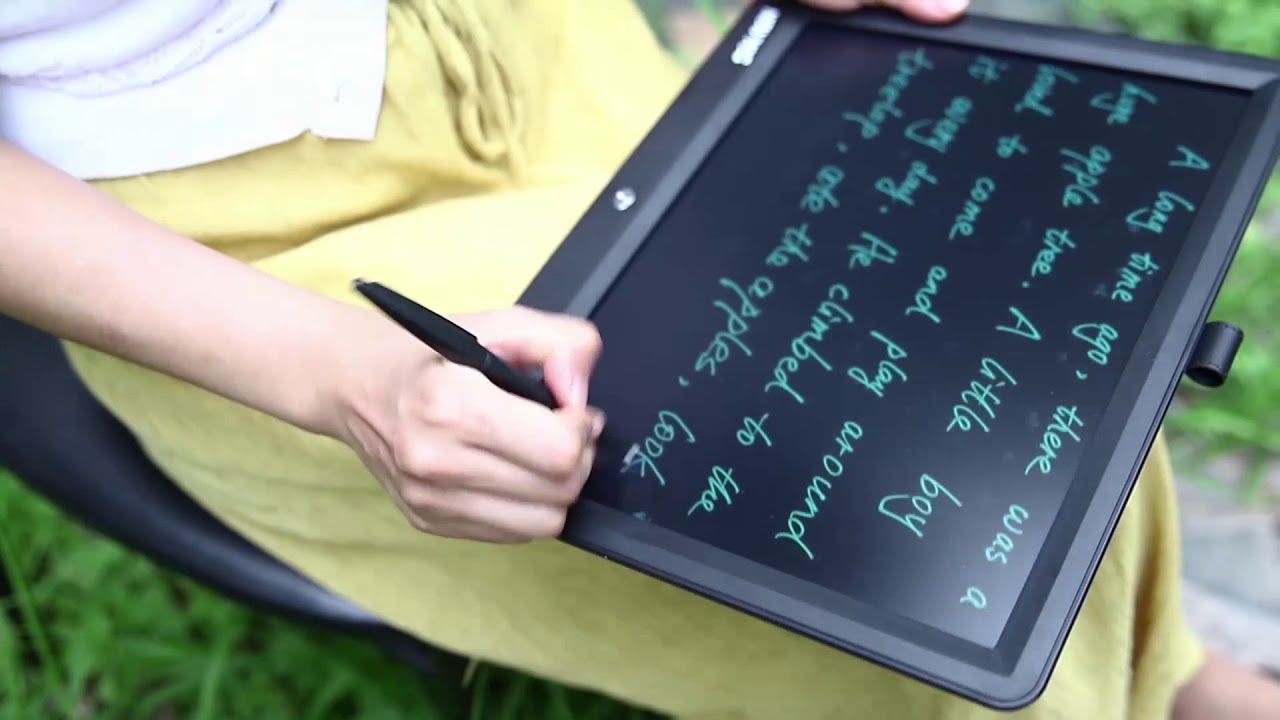 A long time ago, there was a
huge apple tree. A little boy
loved to come and play around
it every day. He climbed to the
treetop, ate the apples, look